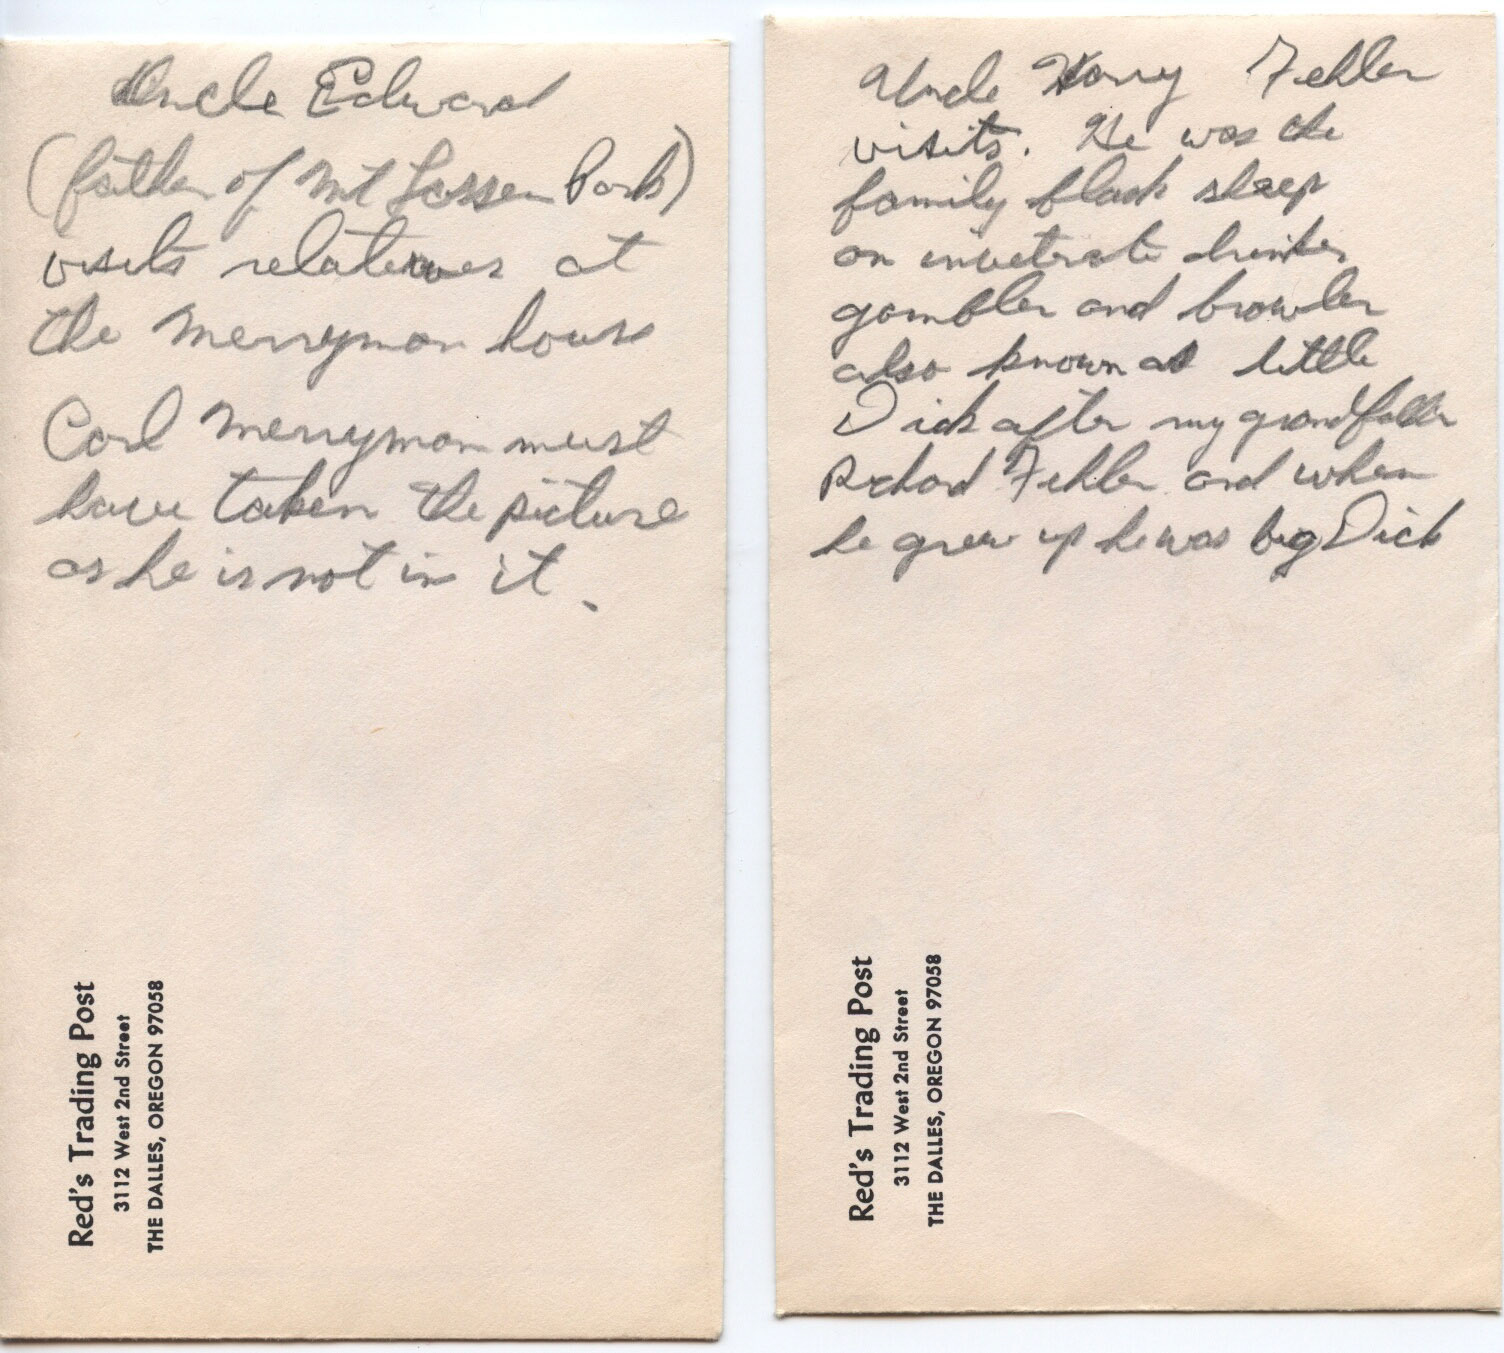 Uncle Edward
(father of Mt Lassen Park)
visits relatives at
the Merryman house
Carl Merryman must
have taken the picture
as he is not in it.
Red's Trading Post
3112 West 2nd Street
THE DALLES, OREGON 97058
Uncle Harry Fehler
visits. He was the
family black sheep
an inveterate drinker
gambler and browler
also known as little
Dick after my grandfather
Richard Fehler and when
he grew up he was big Dick
Red's Trading Post
3112 West 2nd Street
THE DALLES, OREGON 97058